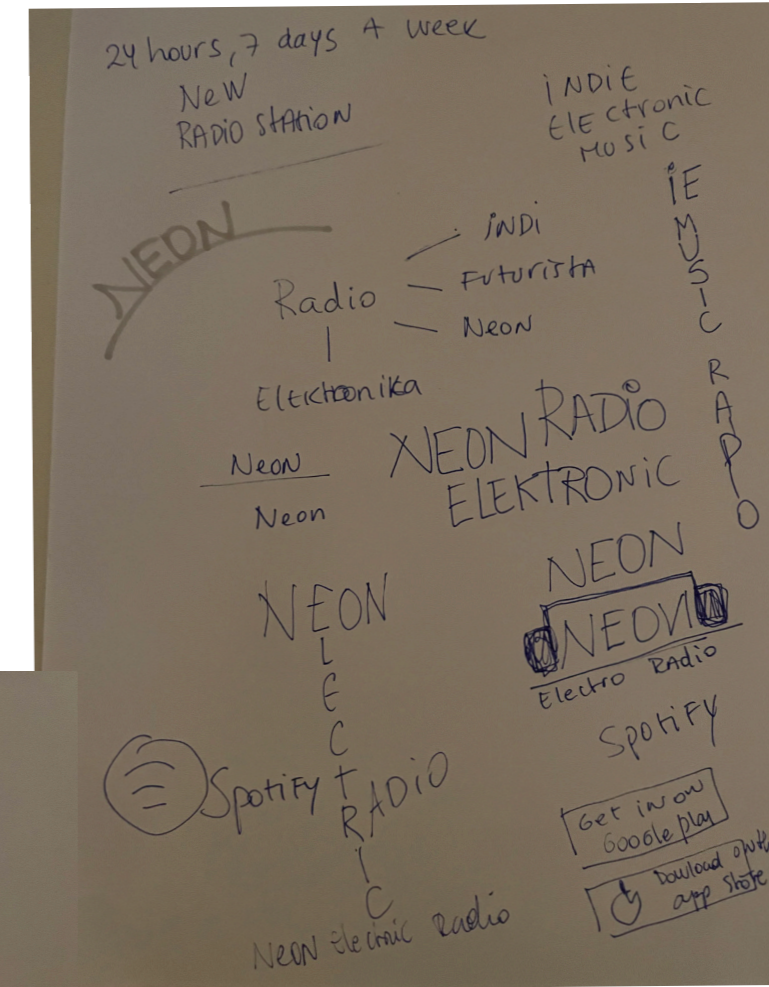 24 hours, 7 days A week
NeW
RADiO StAtiON
iNDiE
ElECtronic
MUSiC
iE
MUSIC
RADIO
NEON
Radio
iNDi
FUTURiStA
NeoN
ElEktronika
NeoN
Neon
NEON RADiO
ELEKTRONiC
NEON
NEON
Electro RADiO
NEON
ELECtRIC
RADiO
SpotiFy
SpotiFY
Get it on
Google play
Dowload
app store
NeoN Elecrnic Radio